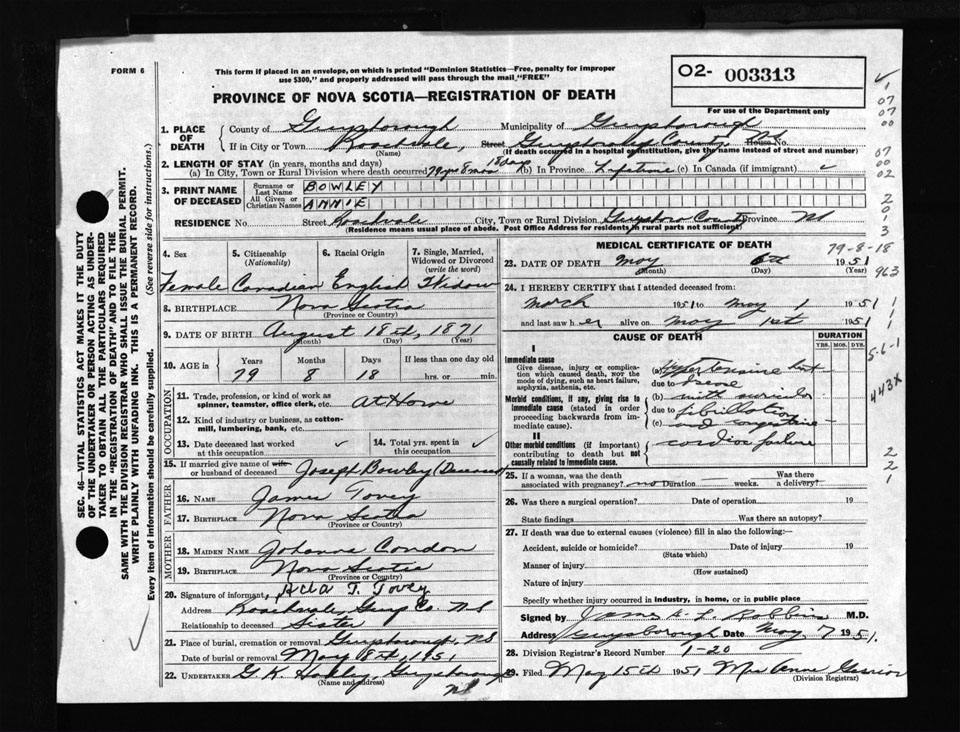 FORM 6
This form if placed in an envelope, on which is printed "Dominion Statistics—Free, penalty for improper
use $300," and properly addressed will pass through the mail "FREE"
O2- 003313
For use of the Department only
PROVINCE OF NOVA SCOTIA—REGISTRATION OF DEATH
1. PLACE OF DEATH
County of Guysborough Municipality of Guysborough
If in City or Town Roachvale, Street Guysborough County NS House No.
(Name) (If death occurred in a hospital or institution, give the name instead of street and number)
2. LENGTH OF STAY (in years, months and days)
(a) In City, Town or Rural Division where death occurred 79 yrs 8 mos 18 days (b) In Province Lifetime (c) In Canada (if immigrant)
3. PRINT NAME OF DECEASED
Surname or Last Name BOWLEY
All Given or Christian Names ANNIE
RESIDENCE No. Street Roachvale City, Town or Rural Division Guysboro County Province NS
(Residence means usual place of abode. Post Office Address for residents in rural parts not sufficient)
4. Sex Female
5. Citizenship (Nationality) Canadian
6. Racial Origin English
7. Single, Married, Widowed or Divorced (write the word) Widow
8. BIRTHPLACE Nova Scotia
(Province or Country)
9. DATE OF BIRTH August 18th, 1871
(Month) (Day) (Year)
10. AGE IN Years Months Days If less than one day old
79 8 18 hrs. or min.
OCCUPATION
11. Trade, profession, or kind of work as spinner, teamster, office clerk, etc. At Home
12. Kind of industry or business, as cotton-mill, lumbering, bank, etc.
13. Date deceased last worked at this occupation ✓
14. Total yrs. spent in this occupation ✓
15. If married give name of wife or husband of deceased Joseph Bowley (Deceased)
FATHER
16. NAME James Tovey
17. BIRTHPLACE Nova Scotia
(Province or Country)
MOTHER
18. MAIDEN NAME Johanna Condon
19. BIRTHPLACE Nova Scotia
(Province or Country)
20. Signature of informant, T. Tovey
Address Roachvale, Guys Co. NS
Relationship to deceased Sister
21. Place of burial, cremation or removal Guysborough, NS
Date of burial or removal May 8th, 1951
22. UNDERTAKER G. K. Guysborough NS
(Name and address)
MEDICAL CERTIFICATE OF DEATH
23. DATE OF DEATH May 6th 1951
(Month) (Day) (Year)
24. I HEREBY CERTIFY that I attended deceased from:
March 1951 to May 1 1951
and last saw her alive on May 1st 1951
CAUSE OF DEATH
DURATION
YRS. MOS. DYS.
I
Immediate cause
Give disease, injury or complication which caused death, NOT the mode of dying, such as heart failure, asphyxia, asthenia, etc.
Morbid conditions, if any, giving rise to immediate cause (stated in order proceeding backwards from immediate cause).
II
Other morbid conditions (if important) contributing to death but not causally related to immediate cause.
(a) Hypertensive heart
due to disease
(b) with auricular
due to fibrillation
(c) and congestive
cardiac failure
25. If a woman, was the death associated with pregnancy? no Duration — weeks. Was there a delivery?
26. Was there a surgical operation? Date of operation 19
State findings Was there an autopsy?
27. If death was due to external causes (violence) fill in also the following:
Accident, suicide or homicide? Date of injury 19
(State which)
Manner of injury
(How sustained)
Nature of injury
Specify whether injury occurred in industry, in home, or in public place
Signed by James A. L. Robbins M.D.
Address Guysborough Date May 7 1951.
28. Division Registrar's Record Number 1-20
29. Filed May 15th 1951 Mrs Anne
(Division Registrar)
SEC. 46—VITAL STATISTICS ACT MAKES IT THE DUTY
OF THE UNDERTAKER OR PERSON ACTING AS UNDER-
TAKER TO OBTAIN ALL THE PARTICULARS REQUIRED
IN THE "REGISTRATION OF DEATH" AND TO FILE THE
SAME WITH THE DIVISION REGISTRAR WHO SHALL ISSUE THE BURIAL PERMIT.
WRITE PLAINLY WITH UNFADING INK. THIS IS A PERMANENT RECORD.
Every item of information should be carefully supplied. (See reverse side for instructions.)
✓
1
07
07
00
07
00
02
2
0
1
3
79-8-18
963
1
1
1
5-6-1
443X
2
2
1